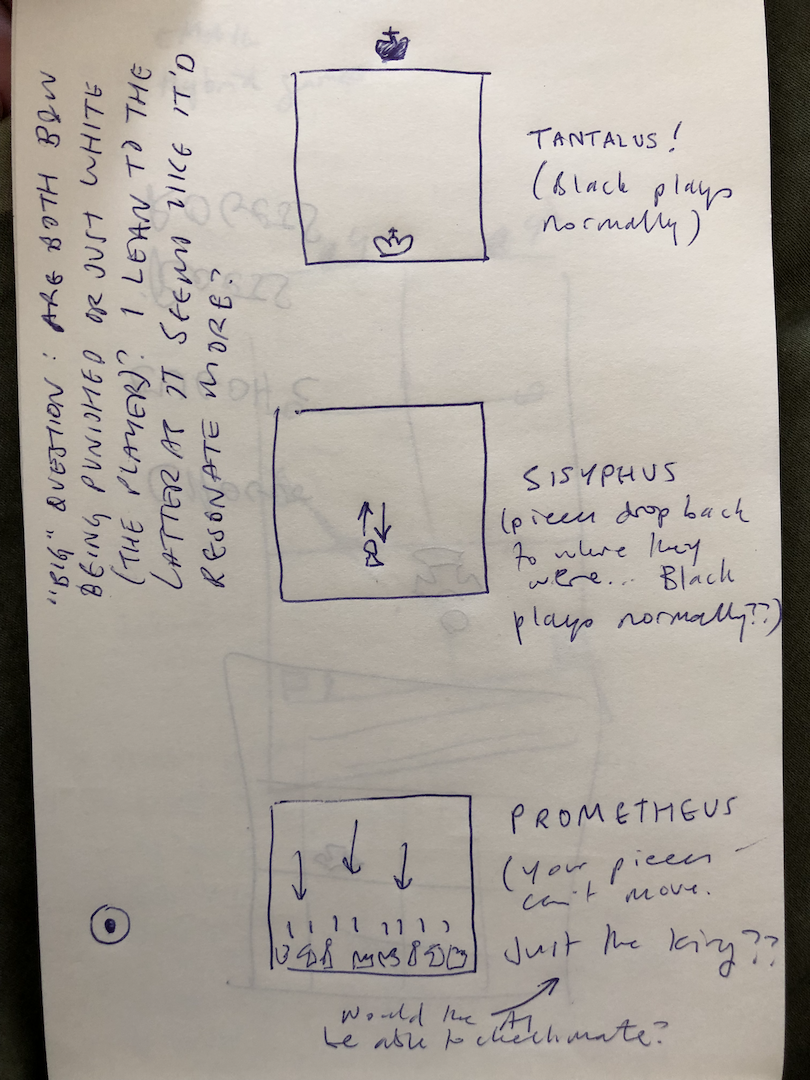 "BIG" QUESTION: ARE BOTH B&W
BEING PUNISHED OR JUST WHITE
(THE PLAYER)? I LEAN TO THE
LATTER AS IT SEEMS LIKE IT'D
RESONATE MORE?
TANTALUS!
(Black plays
normally)
SISYPHUS
(pieces drop back
to where they
were... Black
plays normally??)
PROMETHEUS
(your pieces
can't move.
Just the king??
Would the AI
be able to checkmate?